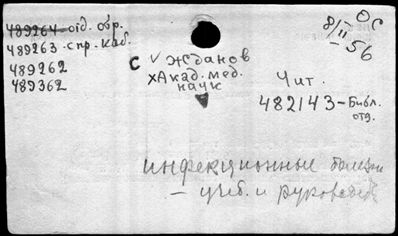 489264 - отд. обр.
489263 - спр. каб.
489262
489362
ОС
8/II - 56
С ✓ Жданов
х Акад. мед.
наук
Чит.
482143 - Библ.
отд.
инфекционные болезни
- учеб. и руководств